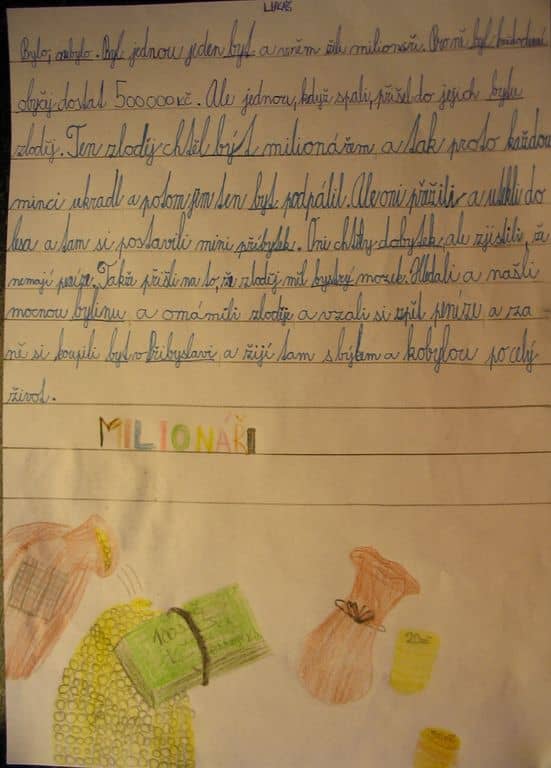 LUKÁŠ
Bylo, nebylo. Byl jednou jeden byt a v něm žili milionáři. Pro ně byl každodenní
obyčej dostat 500000 Kč. Ale jednou, když spali, přišel do jejich bytu
zloděj. Ten zloděj chtěl být milionářem a tak proto každou
minci ukradl a potom jim ten byt podpálil. Ale oni přežili a utekli do
lesa a tam si postavili mini příbytek. Oni chtěli dobytek, ale zjistili, že
nemají peníze. Takže přišli na to, že zloděj měl bystrý mozek. Hledali a našli
mocnou bylinu a omámili zloděje a vzali si zpět peníze a za
ně si koupili byt v Přibyslavi a žijí tam s býkem a kobylou po celý
život.
MILIONÁŘI
100
20 Kč